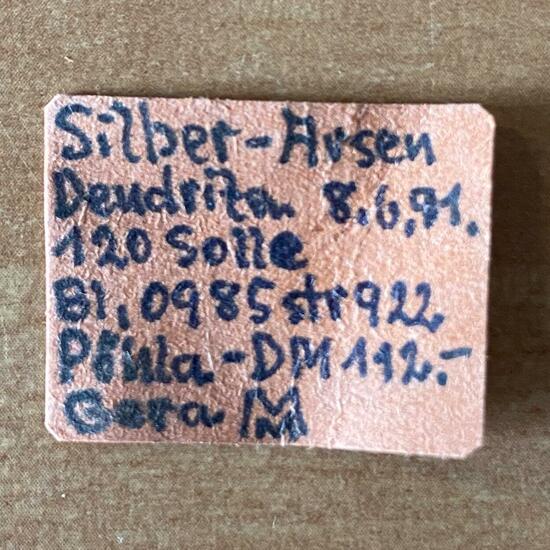 Silber-Arsen
Dendriten 8.6.91.
120 Solle
Bl.0985 str922
Pöhla-DM112.-
Gera M